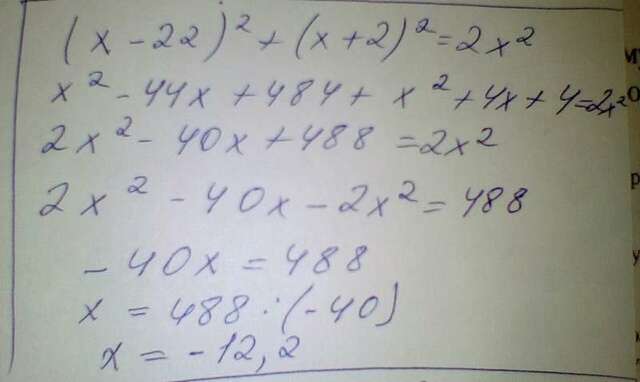 (x-22)²+(x+2)²=2x²
x²-44x+484+x²+4x+4=2x²
2x²-40x+488=2x²
2x²-40x-2x²=488
-40x=488
x=488:(-40)
x=-12,2